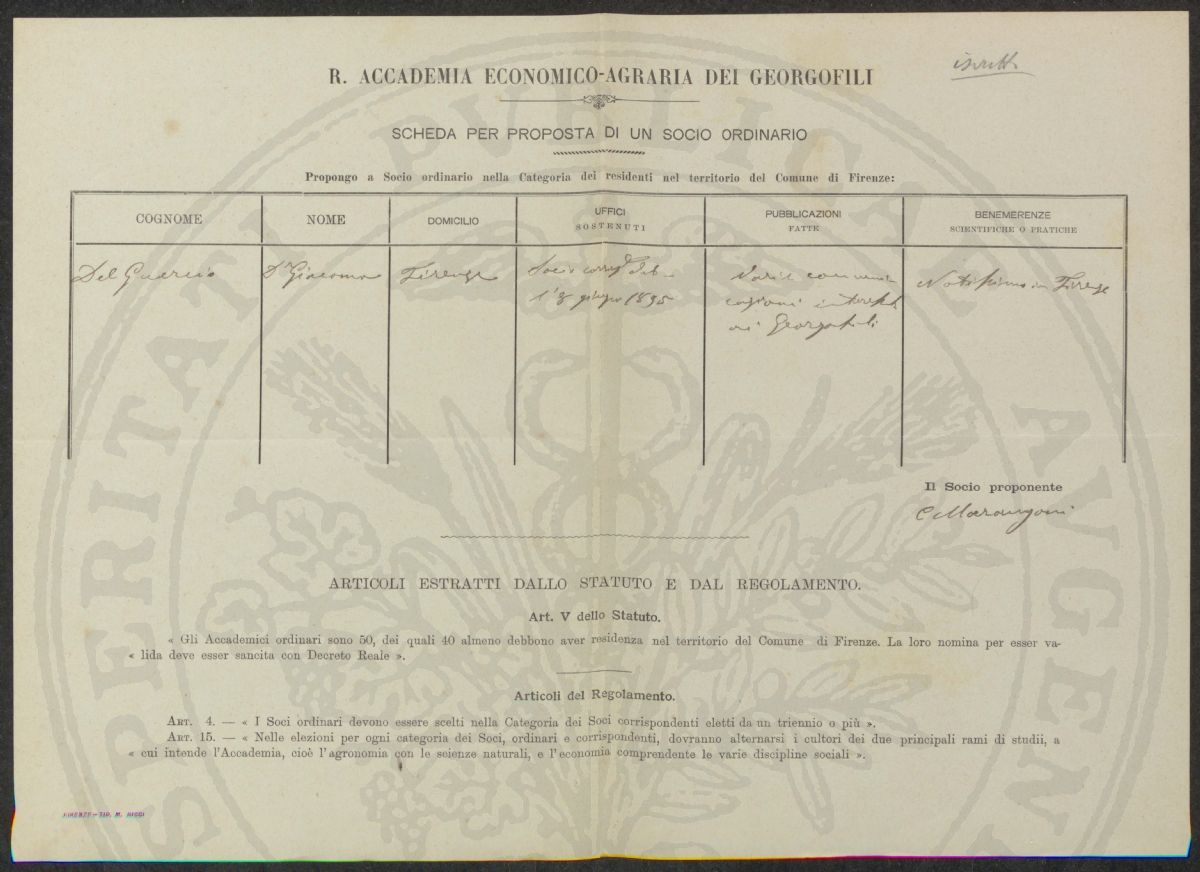 iscritto
R. ACCADEMIA ECONOMICO-AGRARIA DEI GEORGOFILI
SCHEDA PER PROPOSTA DI UN SOCIO ORDINARIO
Propongo a Socio ordinario nella Categoria dei residenti nel territorio del Comune di Firenze:
COGNOME NOME DOMICILIO UFFICI SOSTENUTI PUBBLICAZIONI FATTE BENEMERENZE SCIENTIFICHE O PRATICHE
Del Guercio Dr Giacomo Firenze
Socio corrisp.
giugno 1895
Varie comuni
cazioni
ai Georgofili
Notissimo in Firenze
Il Socio proponente
C Marangoni
ARTICOLI ESTRATTI DALLO STATUTO E DAL REGOLAMENTO.
Art. V dello Statuto.
« Gli Accademici ordinari sono 50, dei quali 40 almeno debbono aver residenza nel territorio del Comune di Firenze. La loro nomina per esser va-
« lida deve esser sancita con Decreto Reale ».
Articoli del Regolamento.
ART. 4. — « I Soci ordinari devono essere scelti nella Categoria dei Soci corrispondenti eletti da un triennio o più ».
ART. 15. — « Nelle elezioni per ogni categoria dei Soci, ordinari e corrispondenti, dovranno alternarsi i cultori dei due principali rami di studii, a
« cui intende l'Accademia, cioè l'agronomia con le scienze naturali, e l'economia comprendente le varie discipline sociali ».
FIRENZE—TIP. M. RICCI
SPERITATI PVBLICAE AVGEN